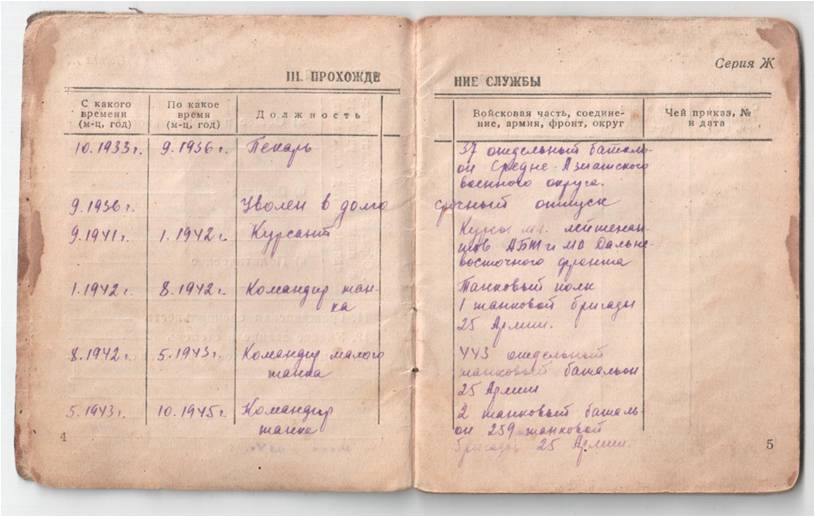 Серия Ж
III. ПРОХОЖДЕ
НИЕ СЛУЖБЫ
С какого времени (м-ц, год)
По какое время (м-ц, год)
Должность
Войсковая часть, соедине-
ние, армия, фронт, округ
Чей приказ, №
и дата
10.1933 г. 9.1936 г. Пекарь 37 отдельный баталь-
он Средне-Азиатского
военного округа.
9.1936 г. Уволен в долго срочный отпуск
9.1941 г. 1.1942 г. Курсант Курсы мл. лейтенан-
тов АБТ и МВ Дальне-
восточного фронта
1.1942 г. 8.1942 г. Командир тан- Танковый полк
ка 1 танковой бригады
25 Армии.
8.1942 г. 5.1943 г. Командир малого 443 отдельный
танка танковый батальон
25 Армии
5.1943 г. 10.1945 г. Командир 2 танковый баталь-
танка он 259 танковой
бригады 25 Армии.
4
5